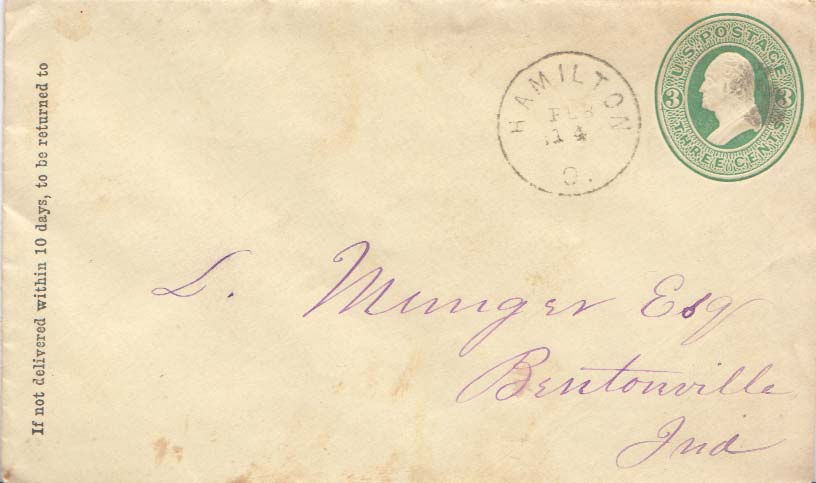 U.S. POSTAGE
3 3
THREE CENTS
HAMILTON
FEB
14
O.
If not delivered within 10 days, to be returned to
L. Munger Esq
Bentonville
Ind